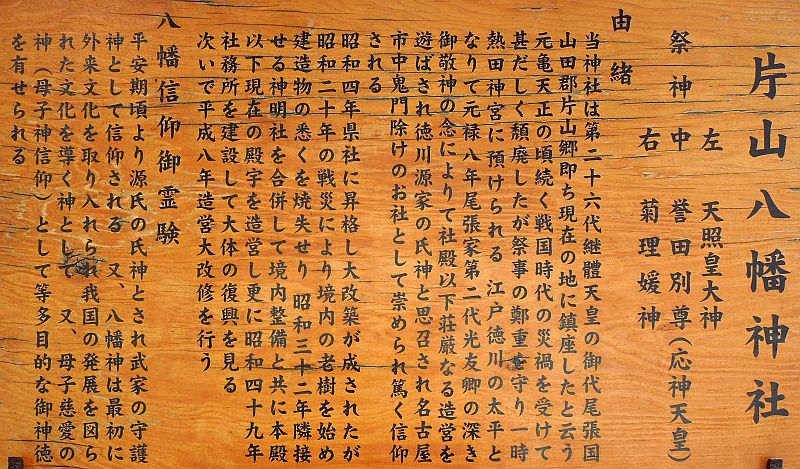 片山八幡神社
左 天照皇大神
祭神 中 誉田別尊(応神天皇)
右 菊理媛神
由緒
当神社は第二十六代継體天皇の御代尾張国
山田郡片山郷即ち現在の地に鎮座したと云う
元亀天正の頃続く戦国時代の災禍を受けて
甚だしく頽廃したが祭事の鄭重を守り一時
熱田神宮に預けられる 江戸徳川の太平と
なりて元禄八年尾張家第二代光友卿の深き
御敬神の念によりて社殿以下荘厳なる造営を
遊ばされ徳川源家の氏神と思召され名古屋
市中鬼門除けのお社として崇められ篤く信仰
される
昭和四年県社に昇格し大改築が成されたが
昭和二十年の戦災により境内の老樹を始め
建造物の悉くを焼失せり 昭和三十二年隣接
せる神明社を合併して境内整備と共に本殿
以下現在の殿宇を造営し更に昭和四十九年
社務所を建設して大体の復興を見る
次いで平成八年造営大改修を行う
八幡信仰御霊験
平安期頃より源氏の氏神とされ武家の守護
神として信仰される 又、八幡神は最初に
外来文化を取り入れられ我国の発展を図ら
れた文化を導く神として 又、母子慈愛の
神(母子神信仰)として等多目的な御神徳
を有せられる